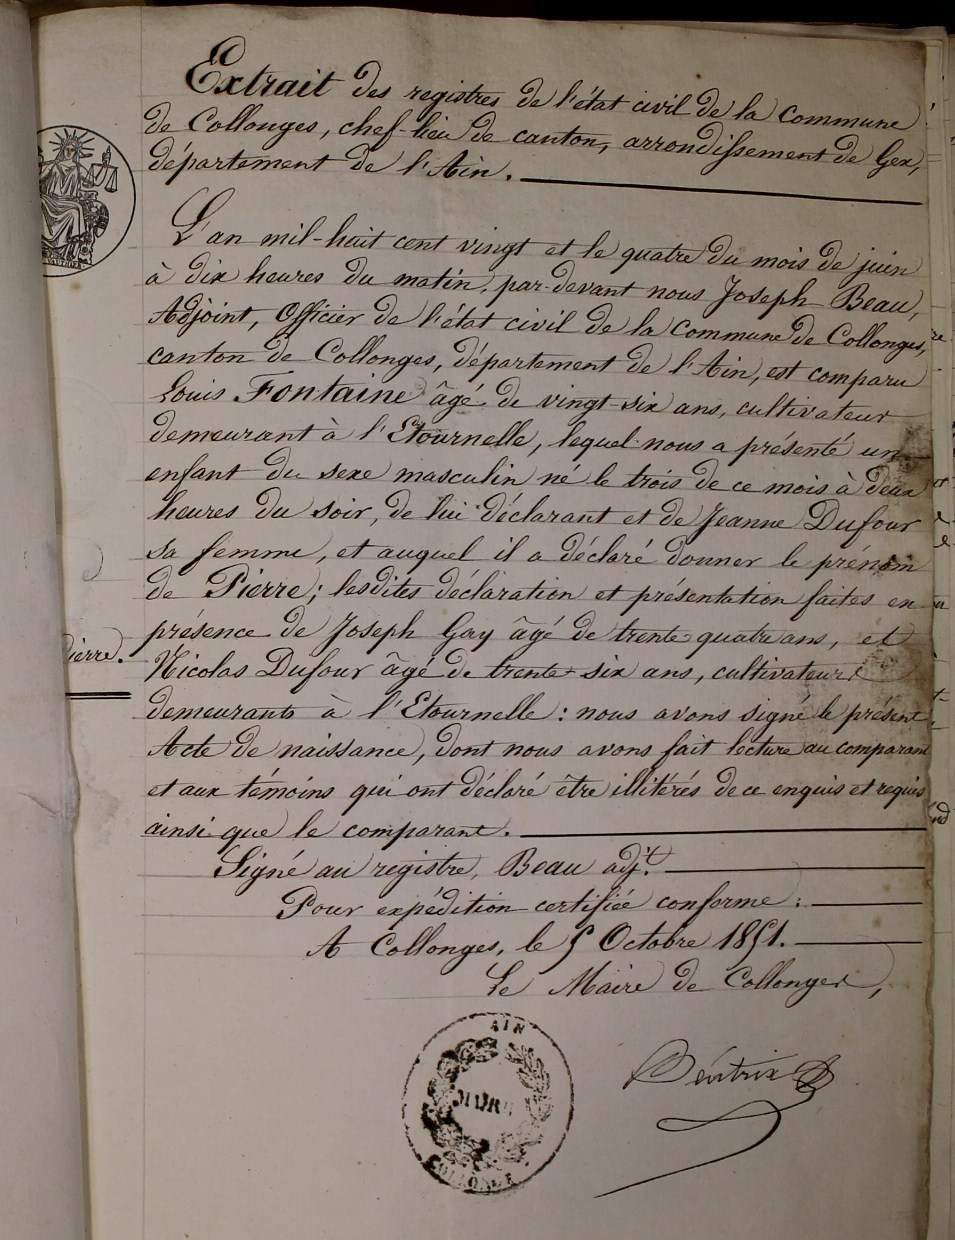 Extrait des registres de l'état civil de la commune
de Collonges, chef-lieu de canton, arrondissement de Gex,
département de l'Ain.
L'an mil-huit cent vingt et le quatre du mois de juin
à dix heures du matin, par-devant nous Joseph Beau,
Adjoint, Officier de l'état civil de la commune de Collonges,
canton de Collonges, département de l'Ain, est comparu
Louis Fontaine âgé de vingt-six ans, cultivateur
demeurant à l'Etournelle, lequel nous a présenté un
enfant du sexe masculin né le trois de ce mois à deux
heures du soir, de lui déclarant et de Jeanne Dufour
sa femme, et auquel il a déclaré donner le prénom
de Pierre; lesdites déclaration et présentation faites en
présence de Joseph Gay âgé de trente quatre ans, et
ierre.
Nicolas Dufour âgé de trente-six ans, cultivateurs
demeurants à l'Etournelle: nous avons signé le présent
Acte de naissance, dont nous avons fait lecture au comparant
et aux témoins qui ont déclaré être illitérés de ce enquis et requis
ainsi que le comparant.
Signé au registre, Beau adj.t
Pour expédition certifiée conforme:
A Collonges, le 5 Octobre 1851.
Le Maire de Collonges,
AIN
MAIRIE
COLLONGES
Béatrix